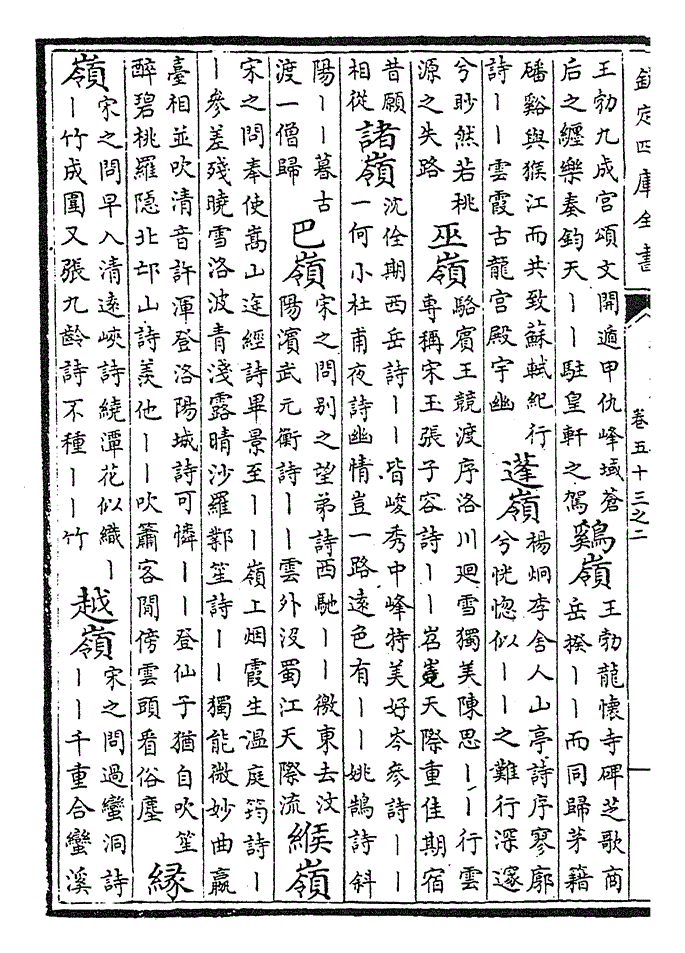 欽定四庫全書
卷五十三之二
王勃九成宮頌文開遁甲仇峰域蒼
后之纏樂奏鈞天丨丨駐皇軒之駕
鷄嶺
王勃龍懷寺碑芝歌商
岳揆丨丨而同歸茅籍
磻谿與猴江而共致蘇軾紀行
詩丨丨雲霞古龍宮殿宇幽
蓬嶺
楊炯李舍人山亭詩序寥廓
兮恍惚似丨丨之難行深邃
兮眇然若桃
源之失路
巫嶺
駱賓王競渡序洛川迴雪獨美陳思丨丨行雲
專稱宋玉張子容詩丨丨岧嶤天際重佳期宿
昔願
相從
諸嶺
沈佺期西岳詩丨丨皆峻秀中峰特美好岑參詩丨丨
一何小杜甫夜詩幽情豈一路遠色有丨丨姚鵠詩斜
陽丨丨暮古
渡一僧歸
巴嶺
宋之問別之望弟詩西馳丨丨徼東去汶
陽濱武元衡詩丨丨雲外沒蜀江天際流
緱嶺
宋之問奉使嵩山途經詩畢景至丨丨嶺上烟霞生溫庭筠詩丨
丨參差殘曉雪洛波青淺露晴沙羅鄴笙詩丨丨獨能微妙曲嬴
臺相並吹清音許渾登洛陽城詩可憐丨丨登仙子猶自吹笙
醉碧桃羅隱北邙山詩羨他丨丨吹簫客閒傍雲頭看俗塵
緣
嶺
宋之問早入清遠峽詩繞潭花似織丨
丨竹成圍又張九齡詩不種丨丨竹
越嶺
宋之問過蠻洞詩
丨丨千重合蠻溪